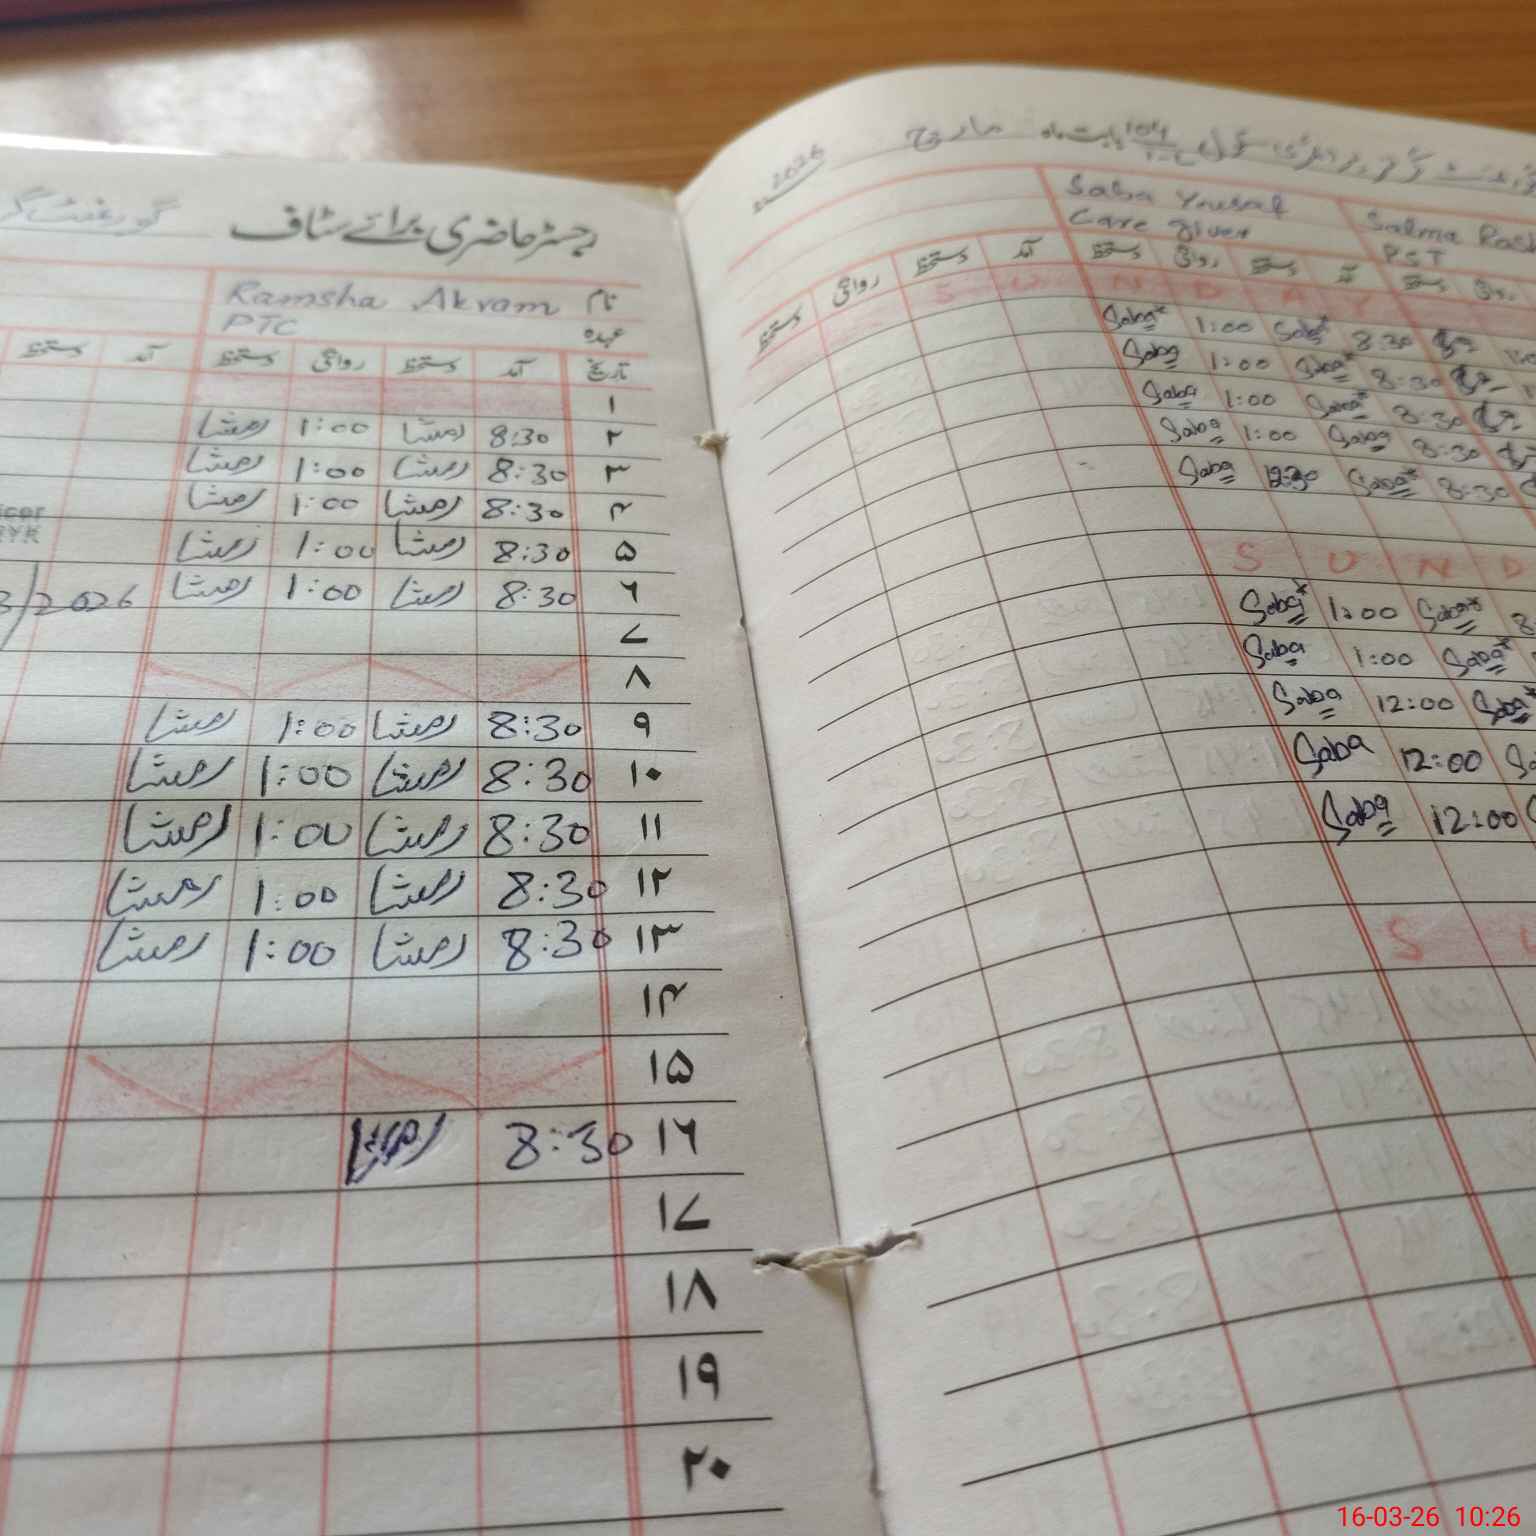 رجسٹر حاضری برائے سٹاف
گورنمنٹ
Ramsha Akram نام
PTC عہدہ
تاریخ آمد دستخط روانگی دستخط آمد دستخط
۱
۲ 8:30 رمشا 1:00 رمشا
۳ 8:30 رمشا 1:00 رمشا
۴ 8:30 رمشا 1:00 رمشا
۵ 8:30 رمشا 1:00 رمشا
۶ 8:30 رمشا 1:00 رمشا
3/2026
۷
۸
۹ 8:30 رمشا 1:00 رمشا
۱۰ 8:30 رمشا 1:00 رمشا
۱۱ 8:30 رمشا 1:00 رمشا
۱۲ 8:30 رمشا 1:00 رمشا
۱۳ 8:30 رمشا 1:00 رمشا
۱۴
۱۵
۱۶ 8:30 رمشا
۱۷
۱۸
۱۹
۲۰
سکول بابت ماہ مارچ 2026
Saba Yousaf
Care giver
Salma
PST
روانگی دستخط آمد دستخط روانگی دستخط آمد دستخط روانگی دستخط
S U N D A Y
Saba 1:00 Saba 8:30
Saba 1:00 Saba 8:30
Saba 1:00 Saba 8:30
Saba 1:00 Saba 8:30
Saba 12:30 Saba 8:30
S U N D
Saba 1:00 Saba
Saba 1:00 Saba
Saba 12:00 Saba
Saba 12:00
Saba 12:00
S
16-03-26 10:26